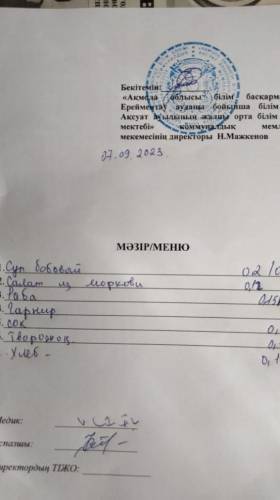 Бекітемін:
«Ақмола облысы білім басқарм
Ерейментау ауданы бойынша білім
Ақсуат ауылының жалпы орта білім
мектебі» коммуналдық мемл
мекемесінің директоры Н.Мажкенов
07.09.2023
МӘЗІР/МЕНЮ
1.Суп бобовай 0,2/
2.Салат из моркови 0,12
Рыба 0,15
Гарнир
сок 0,
Творожок 0,
Хлеб - 0,1
Медик:
спазшы:
директордың ТІЖО: